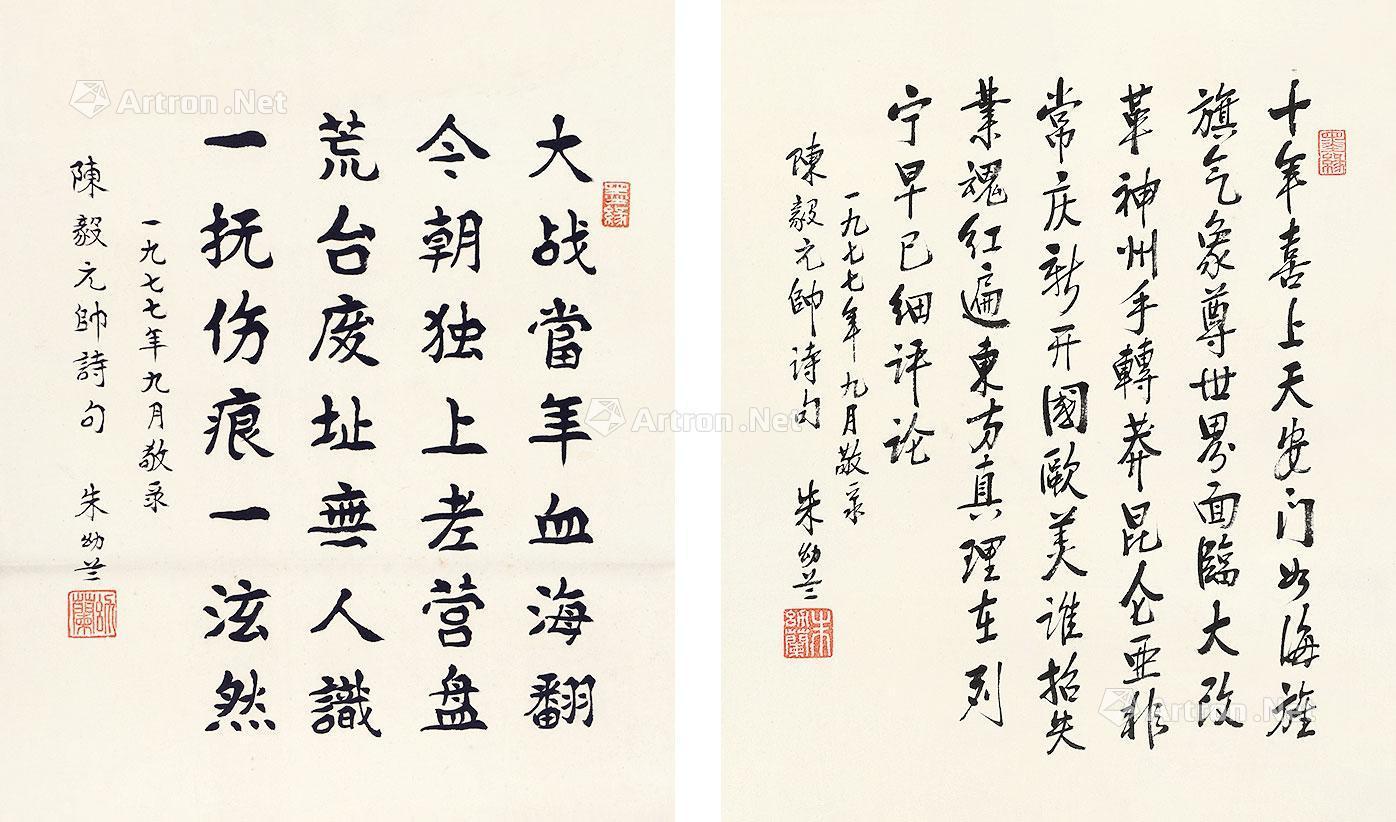 墨緣
十年喜上天安门如海旌
旗气象尊世界面臨大改
革神州手轉莽昆仑亚非
常庆新开國歐美谁招失
業魂红遍東方真理在列
宁早已细评论
一九七七年九月敬录
陳毅元帥诗句 朱幼兰
朱幼蘭
墨緣
大战當年血海翻
今朝独上老营盘
荒台废址無人識
一抚伤痕一泫然
一九七七年九月敬录
陳毅元帥詩句 朱幼兰
幼蘭
Artron.Net
Artron.Net
Artron.Net